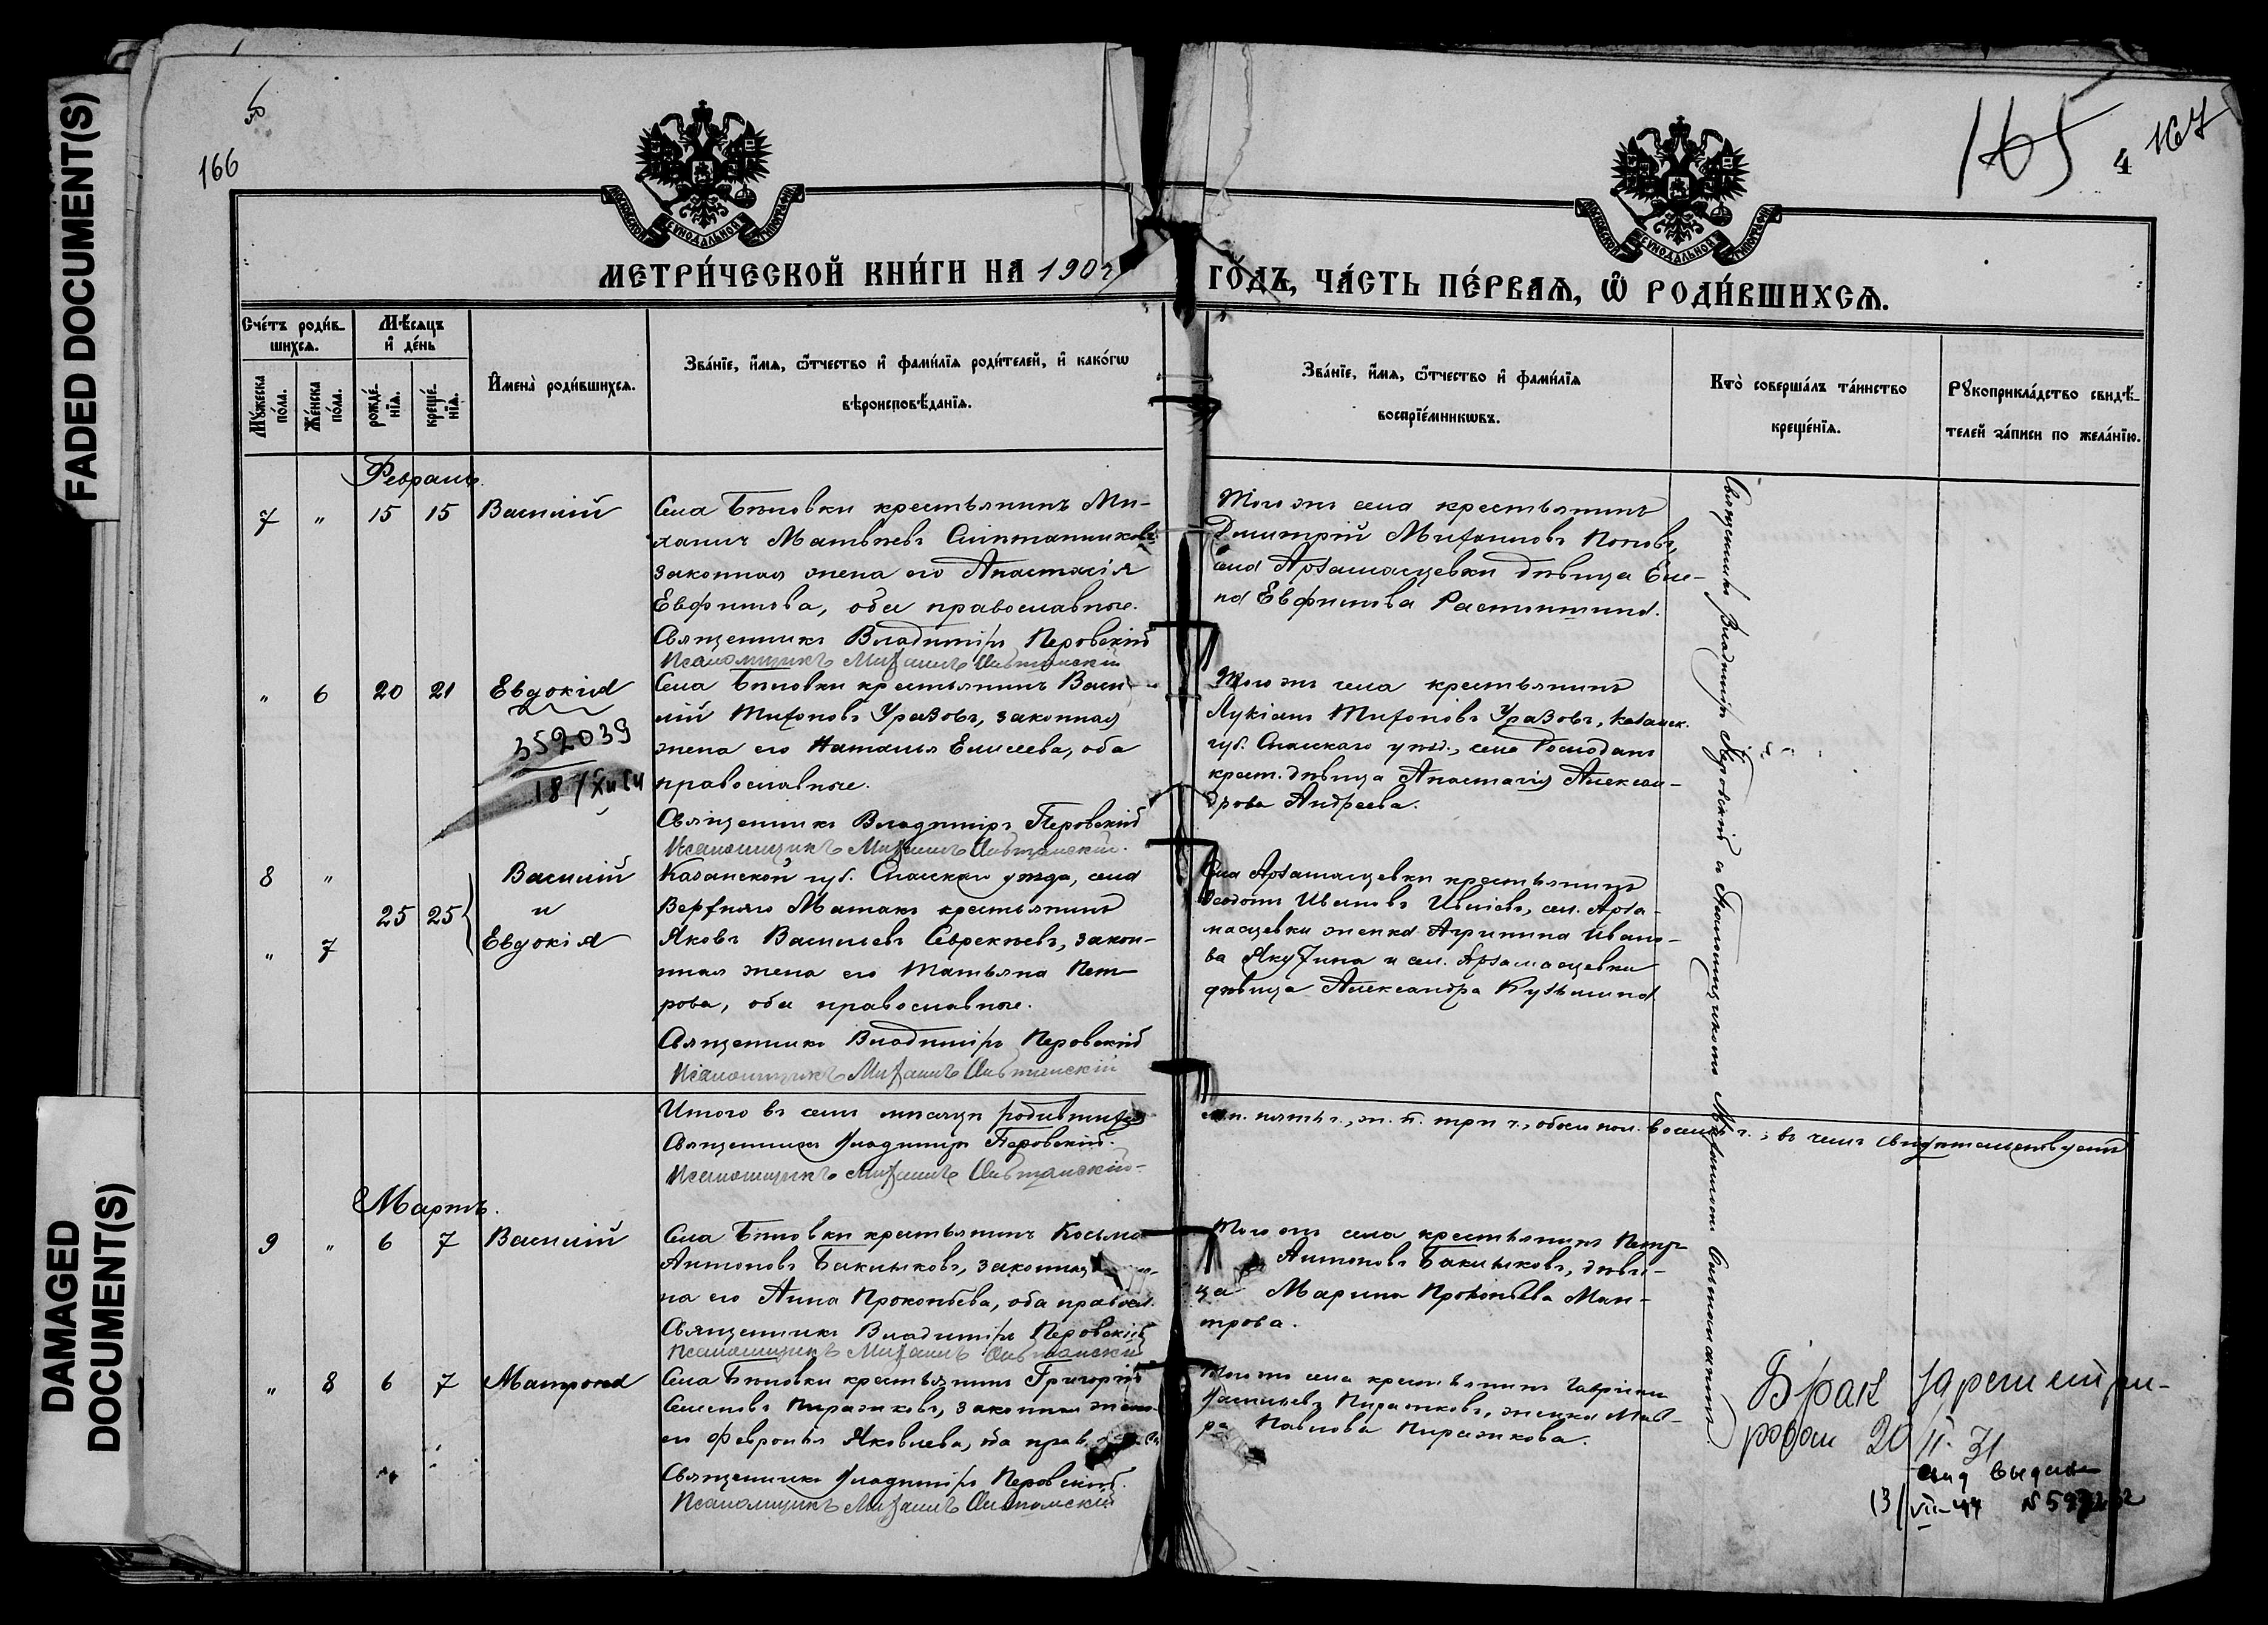 FADED DOCUMENT(S)
DAMAGED
DOCUMENT(S)
166
165
4
167
МОСКОВСКОЙ СѴНОДАЛЬНОЙ ТИПОГРАФІИ
МОСКОВСКОЙ СѴНОДАЛЬНОЙ ТИПОГРАФІИ
МЕТРИ́ЧЕСКОЙ КНИ́ГИ НА 190
ГО́ДЪ, ЧА́СТЬ ПЕ́РВАѦ, Ѡ҆ РОДИ́ВШИХСѦ.
Сче́тъ роди́в-
шихсѧ.
Мѣ́сѧцъ
и҆ де́нь
Мꙋ́жеска
по́ла.
Же́нска
по́ла.
рожде́-
нїѧ.
креще́-
нїѧ.
И҆мена̀ роди́вшихсѧ.
Зва́нїе, и҆́мѧ, ѻ҆́тчество и҆ фами́лїѧ роди́телей, и҆ како́гѡ
вѣроисповѣ́данїѧ.
Зва́нїе, и҆́мѧ, ѻ҆́тчество и҆ фами́лїѧ
воспрїе́мникѡвъ.
Кто̀ соверша́лъ та́инство
креще́нїѧ.
Рꙋкоприкла́дство свидѣ́-
телей за́писи по жела́нїю.
Февраль.
7 " 15 15 Василій
Села Бѣловки крестьянинъ Ми-
хаилъ Матвѣевъ
законная жена его Анастасія
Евфимова, оба православные.
Священникъ Владиміръ Перовскій
Псаломщикъ Михаилъ
Того же села крестьянинъ
Димитрій Михаиловъ Поповъ,
села Арзамасцевки дѣвица Еле-
на Евфимова
" 6 20 21 Евдокія
352039
Села Бѣловки крестьянинъ Васи-
лій Тихоновъ Уразовъ, законная
жена его Наталья Елисеева, оба
православные.
Священникъ Владиміръ Перовскій
Псаломщикъ Михаилъ
Того же села крестьянинъ
Лукіанъ Тихоновъ Уразовъ, Казанск.
губ. Спасскаго уѣзд., села
крест. дѣвица Анастасія Алексан-
дрова Андреева.
8 " 25 25 Василій
и
" 7 Евдокія
Казанской губ. Спасскаго уѣзда, села
Верхняго Матакъ крестьянинъ
Яковъ Васильевъ закон-
ная жена его Татьяна Пет-
рова, оба православные.
Священникъ Владиміръ Перовскій
Псаломщикъ Михаилъ
Села Арзамасцевки крестьянинъ
Ивановъ сел. Арза-
масцевки женка Агрипина Ивано-
ва и сел. Арзамасцевки
дѣвица Александра Кузьмина
Итого въ семъ мѣсяцѣ родившихся
Священникъ Владиміръ Перовскій.
Псаломщикъ Михаилъ
м. п. пять ч., ж. п. три ч., обоих пол. восемь ч., въ чемъ свидѣтельствуемъ
Мартъ.
9 " 6 7 Василій
Села Бѣловки крестьянинъ Косьма
Антоновъ Бакшиковъ, законная
на его Анна Прокопьева, оба правосл.
Священникъ Владиміръ Перовскій
Псаломщикъ Михаилъ
Того же села крестьянинъ Петръ
Антоновъ Бакшиковъ, дѣви-
ца Марина Прокопьева
" 8 6 7 Матрона
Села Бѣловки крестьянинъ Григорій
Семеновъ Пирожковъ, законная жена
его Февронья Яковлева, оба прав
Священникъ Владиміръ Перовскій.
Псаломщикъ Михаилъ
Того же села крестьянинъ Гавріилъ
Пирожковъ, женка Мав-
ра Павлова Пирожкова.
Священникъ Владиміръ Перовскій и Псаломщикъ Михаилъ
Брак зарегистри-
рован 20/II 31